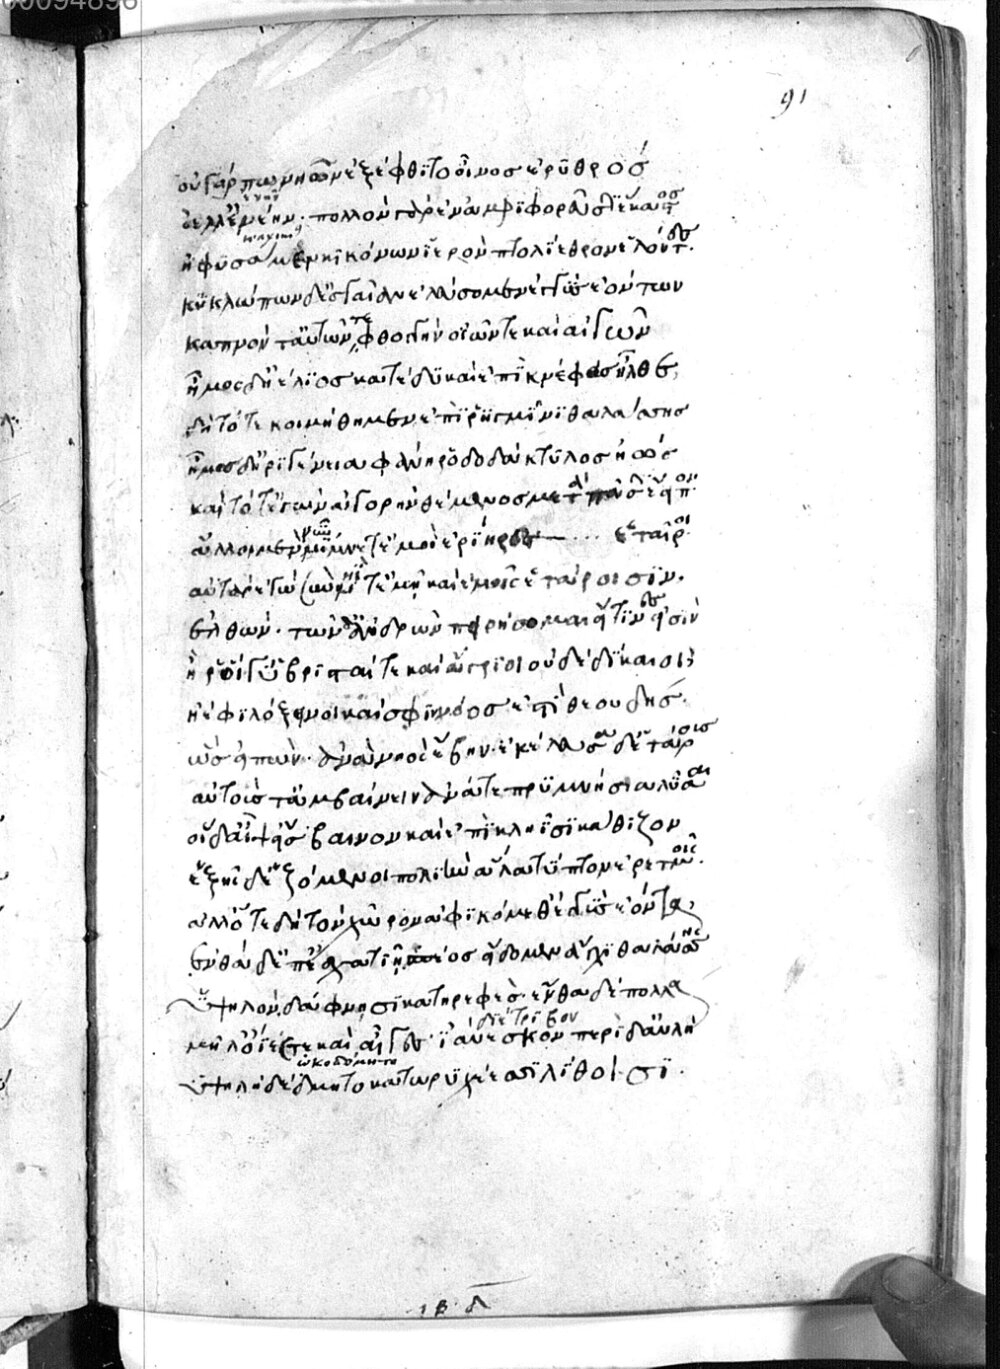 00094898
91
οὐ γάρ πω νηῶν ἐξέφθιτο οἶνος ἐρυθρός
ἀλλ' ἐνέην. πολλὸν γὰρ ἐν ἀμφιφορεῦσιν ἕκαστος
ἠφύσαμεν κικόνων ἱερὸν πτολίεθρον ἑλόντες.
κυκλώπων δ' ἐς γαῖαν ἐλεύσομεν ἐγγὺς ἐόντων
καπνόν τ' αὐτῶν τε φθογγήν οἰῶν τε καὶ αἰγῶν
ἦμος δ' ἠέλιος κατέδυ καὶ ἐπὶ κνέφας ἦλθε,
δὴ τότε κοιμήθημεν ἐπὶ ῥηγμῖνι θαλάσσης
ἦμος δ' ἠριγένεια φάνη ῥοδοδάκτυλος ἠώς
καὶ τότ' ἐγὼν ἀγορὴν θέμενος μετὰ πᾶσιν ἔειπον
ἄλλοι μὲν νῦν μίμνετ' ἐμοὶ ἐρίηρες ἑταῖροι
αὐτὰρ ἐγὼ σὺν νηΐ τ' ἐμῇ καὶ ἐμοῖς ἑτάροισιν.
ἐλθὼν. τῶνδ' ἀνδρῶν πειρήσομαι οἵτινες εἰσὶν
ἤ ῥ' οἵ γ' ὑβρισταί τε καὶ ἄγριοι οὐδὲ δίκαιοι
ἠὲ φιλόξεινοι καί σφιν νόος ἐστὶ θεουδής.
ὣς εἰπὼν. ἀνὰ νηὸς ἔβην. ἐκέλευσα δ' ἑταίροις
αὐτούς τ' ἀμβαίνειν ἀνά τε πρυμνήσια λῦσαι
οἱ δ' αἶψ' εἴσβαινον καὶ ἐπὶ κληῖσι καθῖζον
ἑξῆς δ' ἑζόμενοι πολιὴν ἅλα τύπτον ἐρετμοῖς.
ἀλλ' ὅτε δὴ τὸν χῶρον ἀφικόμεθ' ἐγγὺς ἐόντα,
ἔνθα δ' ἐπ' ἐσχατιῇ σπέος εἴδομεν ἄγχι θαλάσσης
ὑψηλὸν δάφνῃσι κατηρεφές. ἔνθα δὲ πολλὰ
διέτριβον
μῆλ' ὄϊές τε καὶ αἶγες ἰαύεσκον περὶ δ' αὐλὴ
ᾠκοδόμητο
ὑψηλὴ δέδμητο κατωρυχέεσσι λίθοισι.
ιβ δ